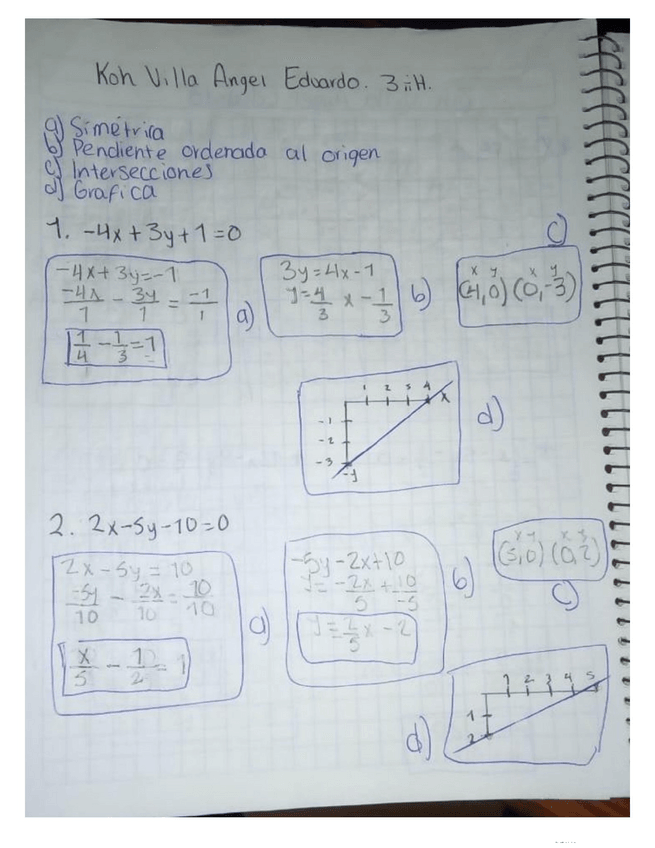 Koh Villa Angel Eduardo. 3iiH.
a) Simétrica
b) Pendiente ordenada al origen
c) Intersecciones
d) Grafica
1. -4x + 3y + 1 = 0
c)
-4x + 3y = -1
-4x/1 - 3y/1 = -1/1
1/4 - 1/3 = 1
a)
3y = 4x - 1
y = 4/3 x - 1/3
b)
x y x y
(4,0) (0,-3)
1 2 3 4
x
-1
-2
-3
-y
d)
2. 2x - 5y - 10 = 0
2x - 5y = 10
-5y/10 - 2x/10 = 10/10
x/5 - 1/2 = 1
a)
-5y - 2x + 10
y = -2x/5 + 10/-5
y = 2/5 x - 2
b)
x y x y
(5,0) (0,2)
c)
1 2 3 4 5
1
2
d)